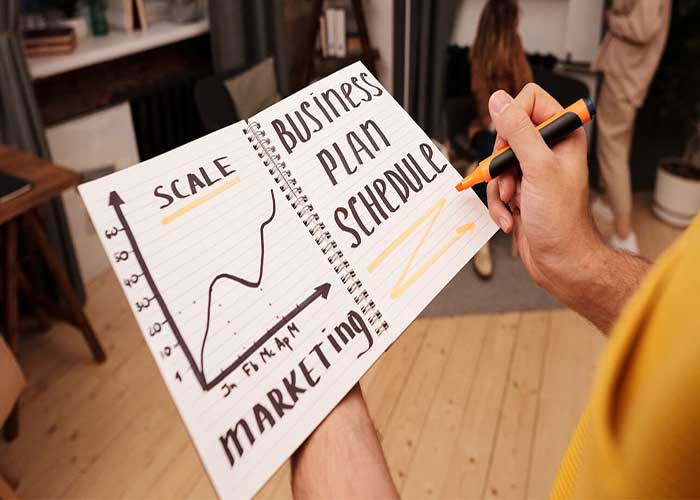 SCALE
60
50
40
30
10
1
Jn Fb M Ap M
marketing
BUSINESS
PLAN
SCHEDULE